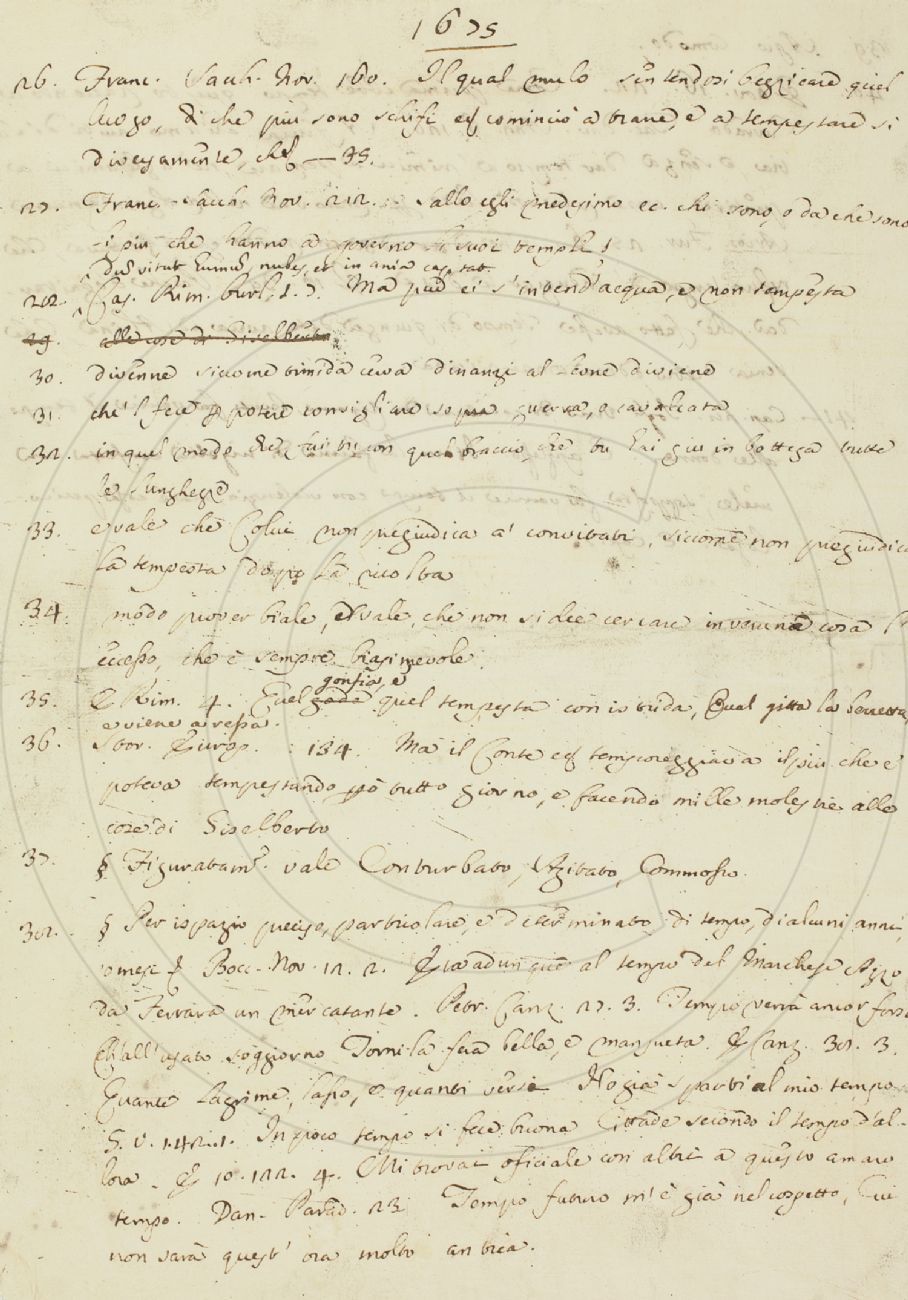 1675
26. Franc. Sacch. Nov. 160. Il qual mulo sentendosi bezzicare quel
luogo, di che più sono schifi ec cominciò a trarre, e a tempestare sì
diversamente, che — 35.
27. Franc. Sacch. Nov. 212. Sallo egli medesimo ec. chi sono, o da che sono
li più che hanno a governo li suoi templi!
Dum vitat humum, nubes, et inania captat.
28. Cas. Rim. burl. 1. 7. Ma può ei s'intend'acqua, e non tempesta
29. alle cose di Giselberto
30. divenne siccome timida cerva dinanzi al leone diviene
31. che'l fece potere consigliare sopra guerra, o cavalcata
32. in quel modo che fai tu con quel braccio, che tu hai giù in bottega tutte
le
33. e vale che Colui non pregiudica a' convitati, siccome non pregiudica
La tempesta dopo La ricolta
34. modo proverbiale, e vale, che non si dee cercare in veruna cosa l'
eccesso, che è sempre biasimevole.
35. E Rim. 4. Quel gonfia, e quel tempesta con istrida, Qual gitta la berretta
e viene a ressa.
36. Stor. Europ. 134. Ma il Conte ec temporeggiava il più che e'
poteva tempestando tutto giorno, e facendo mille molestie alle
cose di Giselberto
37. § Figuratam. vale Conturbato, Agitato, Commosso.
38. § Per ispazio preciso, particolare, e determinato di tempo, di alcuni anni,
o mesi Bocc. Nov. 12. 2. Era adunque al tempo del Marchese Azzo
da Ferrara un mercatante. Petr. Canz. 27. 3. Tempo verrà ancor forse
Ch'all'usato soggiorno Torni la fera bella, e mansueta. E Canz. 38. 3.
Quante Lagrime, lasso, e quanti versi Ho già sparti al mio tempo
G. V. 1.42.1. In poco tempo si fece buona Cittade secondo il tempo d'al-
lora. E 10.122. 4. Mi trovai oficiale con altri a questo amaro
tempo. Dan. Parad. 23 Tempo futuro m'è già nel cospetto, Cui
non sarà quest'ora molto antica.